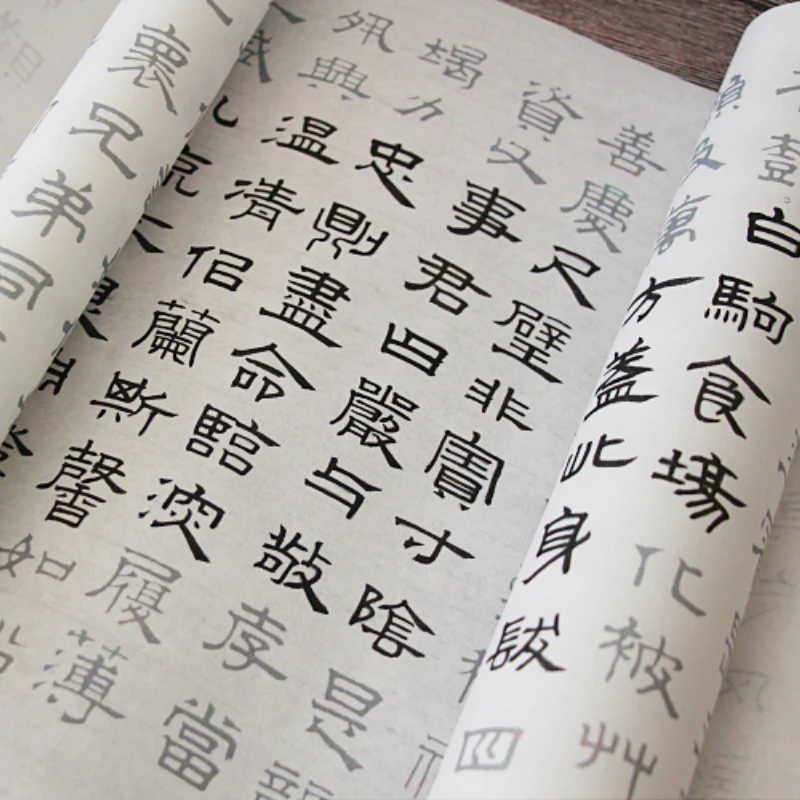 白駒食場化被艸
萬方盖此身髮四
善慶尺璧非寶寸陰是
資父事君曰嚴与敬孝當
竭力忠則盡命臨深履薄
夙興温凊佀蘭斯馨如
懷兄弟同